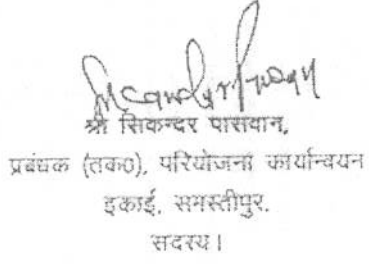 श्री सिकन्दर पासवान,
प्रबंधक (तक०), परियोजना कार्यान्वयन
इकाई, समस्तीपुर,
सदस्य।